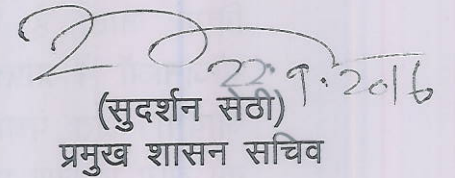 22.9.2016
(सुदर्शन सेठी)
प्रमुख शासन सचिव